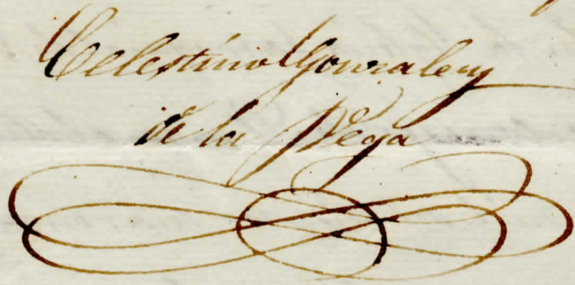 Celestino Gonzalez
de la Vega